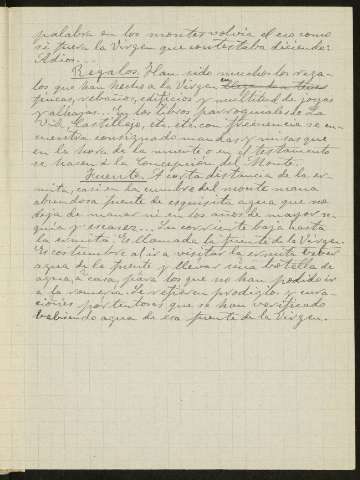 palabra en los montes volvia el eco como
si fuera la Virgen que contestaba diciendo:
Adios...
Regalos. Han sido muchos los rega-
los que han hecho a la Virgen en
fincas, rebaños, edificios y multitud de joyas
y alhajas. En los libros parroquiales de La
Castellejo, etc, etc, con frecuencia se en-
cuentra consignado mandas y misas que
en la hora de la muerte o en el testamento
se hacen a la Concepción del Monte.
Fuente. A corta distancia de la er-
mita, casi en la cumbre del monte mana
abundosa fuente de exquisita agua que no
deja de manar ni en los años de mayor se-
quia y escasez... Su corriente baja hasta
la ermita. Es llamada la fuente de la Virgen.
Es costumbre al ir a visitar la ermita beber
agua de la fuente y llevar una botella de
agua a casa para los que no han podido ir
a la romeria. Se refieren prodigios y cura-
ciones portentosas que se han verificado
bebiendo agua de esa fuente de la Virgen.